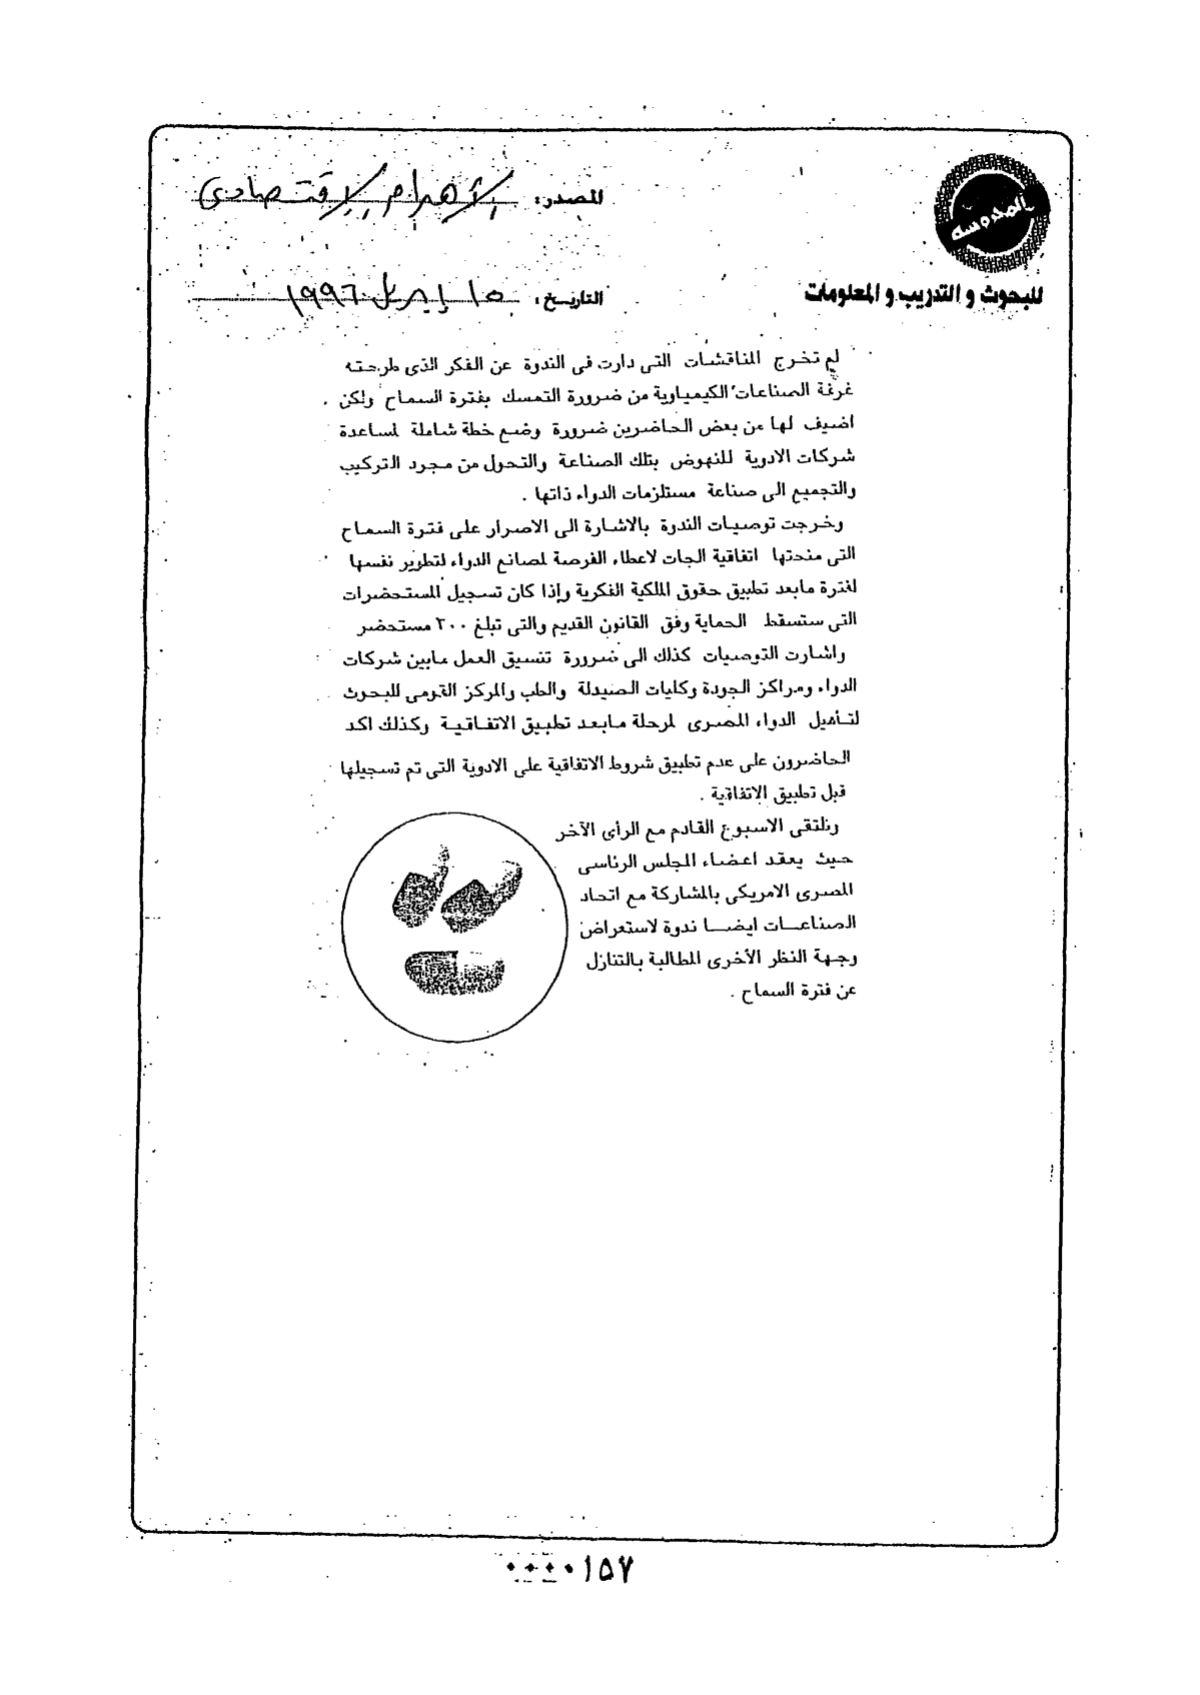 المحروسة
للبحوث و التدريب و المعلومات
المصدر: الأهرام الاقتصادى
التاريخ: ١٥ إبريل ١٩٩٦
لم تخرج المناقشات التى دارت فى الندوة عن الفكر الذى طرحته
غرفة الصناعات الكيمياوية من ضرورة التمسك بفترة السماح ولكن
اضيف لها من بعض الحاضرين ضرورة وضع خطة شاملة لمساعدة
شركات الادوية للنهوض بتلك الصناعة والتحول من مجرد التركيب
والتجميع الى صناعة مستلزمات الدواء ذاتها .
وخرجت توصيات الندوة بالاشارة الى الاصرار على فترة السماح
التى منحتها اتفاقية الجات لاعطاء الفرصة لمصانع الدواء لتطوير نفسها
لفترة مابعد تطبيق حقوق الملكية الفكرية وإذا كان تسجيل المستحضرات
التى ستسقط الحماية وفق القانون القديم والتى تبلغ ٣٠٠ مستحضر
واشارت التوصيات كذلك الى ضرورة تنسيق العمل مابين شركات
الدواء ومراكز الجودة وكليات الصيدلة والطب والمركز القومى للبحوث
لتأهيل الدواء المصرى لمرحلة مابعد تطبيق الاتفاقية وكذلك اكد
الحاضرون على عدم تطبيق شروط الاتفاقية على الادوية التى تم تسجيلها
قبل تطبيق الاتفاقية .
ونلتقى الاسبوع القادم مع الرأى الآخر
حيث يعقد اعضاء المجلس الرئاسى
المصرى الامريكى بالمشاركة مع اتحاد
الصناعات ايضا ندوة لاستعراض
وجهة النظر الأخرى المطالبة بالتنازل
عن فترة السماح .
٠٠٠٠١٥٧